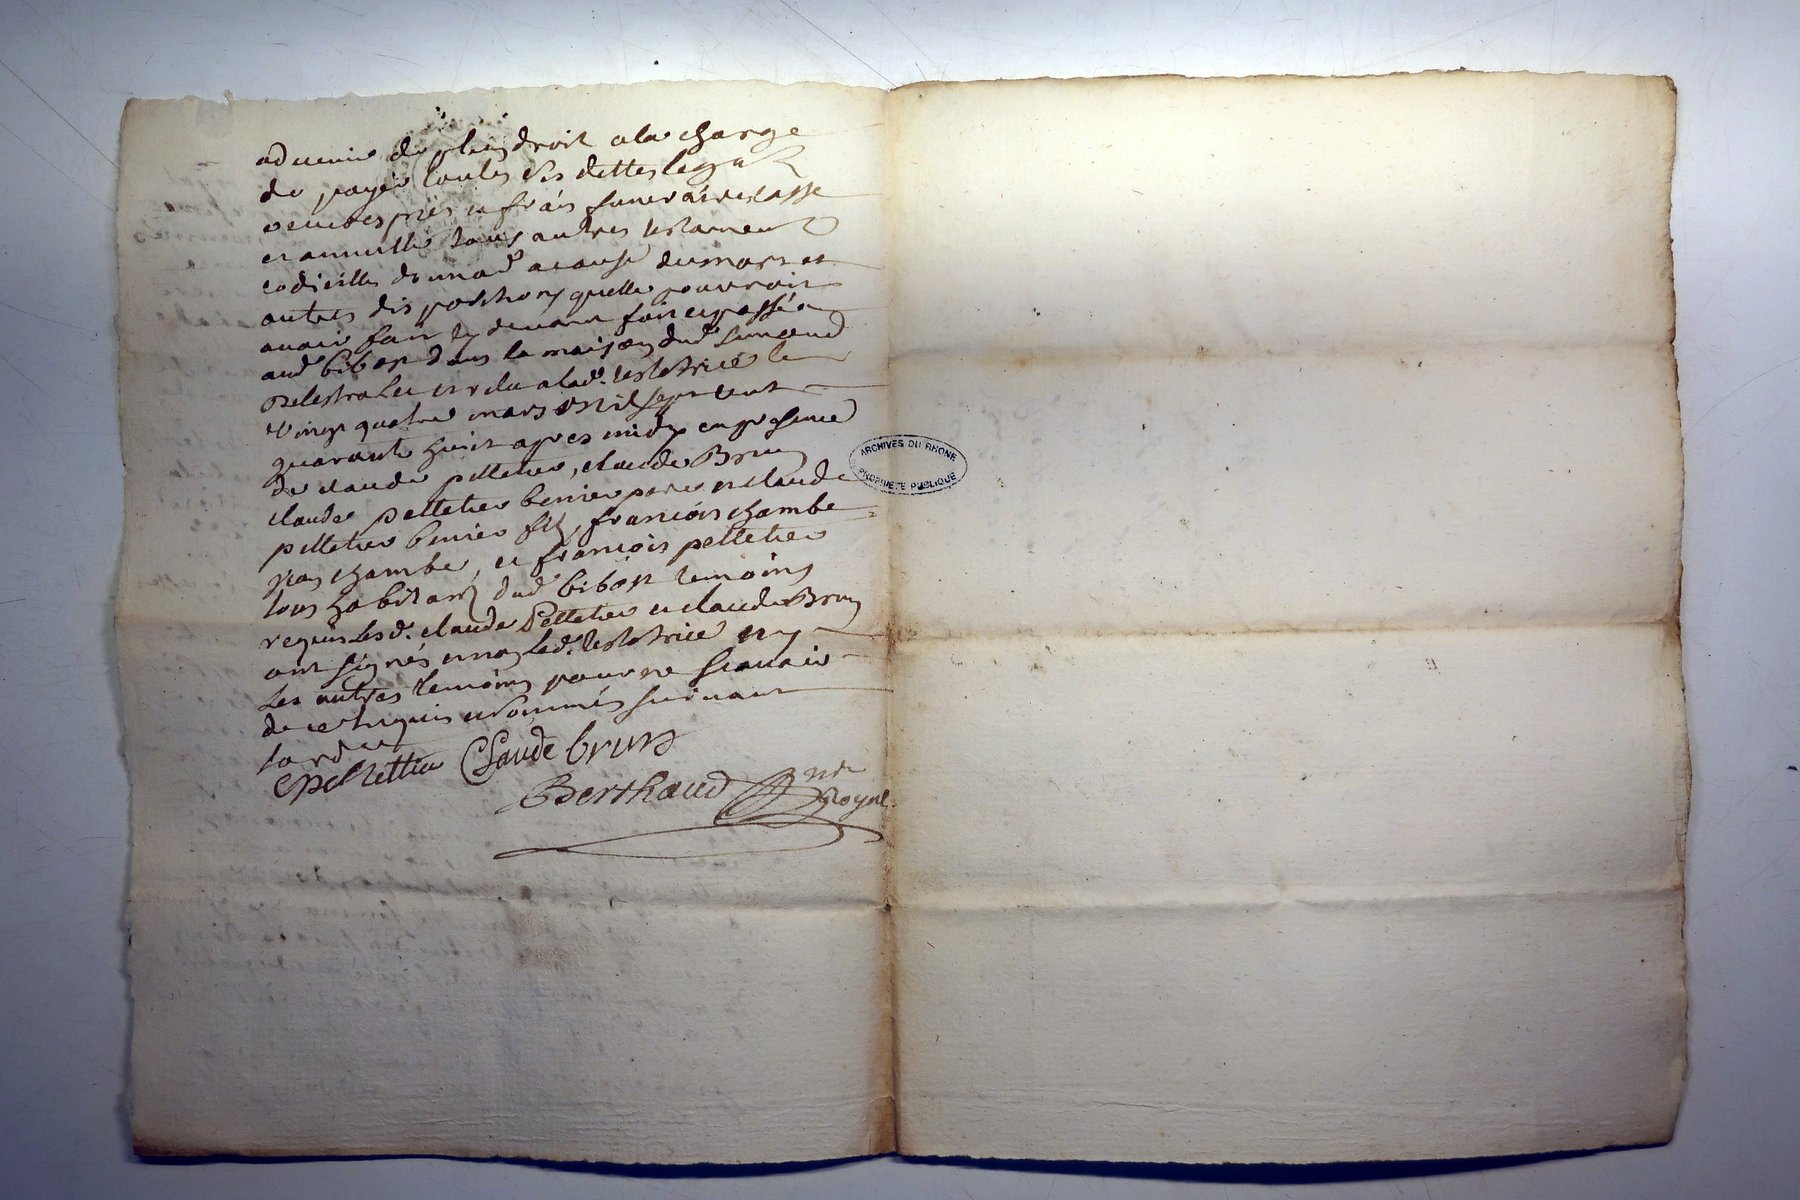 advenir de plein droit ala charge
de payer toutes ses dettes legats
œuvres pies et frais funeraires casse
et annulle tous autres testament
codicille donnaon acause de mort et
autres dispositions quelle pourroit
avoir fait cy devant fait et passé a
aud bibost dans la maison dud
et relu alad. testatrice le
vingt quatre mars mil sept cent
quarante huit apres midy en presence
de claude pelletier, claude Brun
claude pelletier benier pere et claude
pelletier benier fils, francois chambe
jean chambe, et francois pelletier
tous habitants dud bibost temoins
requis Lesd. claude Pelletier et claude Brun
ont signés et non lad. testatrice ny
Les autres temoins pour ne scavoir
de ce requis et sommés suivant
lord.ce
Cpelletier Claude brun
Berthaud nre
Royal
ARCHIVES DU RHONE
PROPRIETE PUBLIQUE